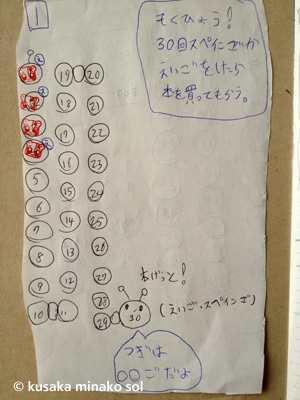 1
もくひょう!
30回スペインごか
えいごをしたら
本を買ってもらう。
19 20
18 21
17 22
16 23
5 15 24
6 14 25
7 13 26
8 12 27
9 28
10 11 29 30
本げっと!
(えいご・スペインご)
つぎは
〇〇ごだよ
© kusaka minako sol